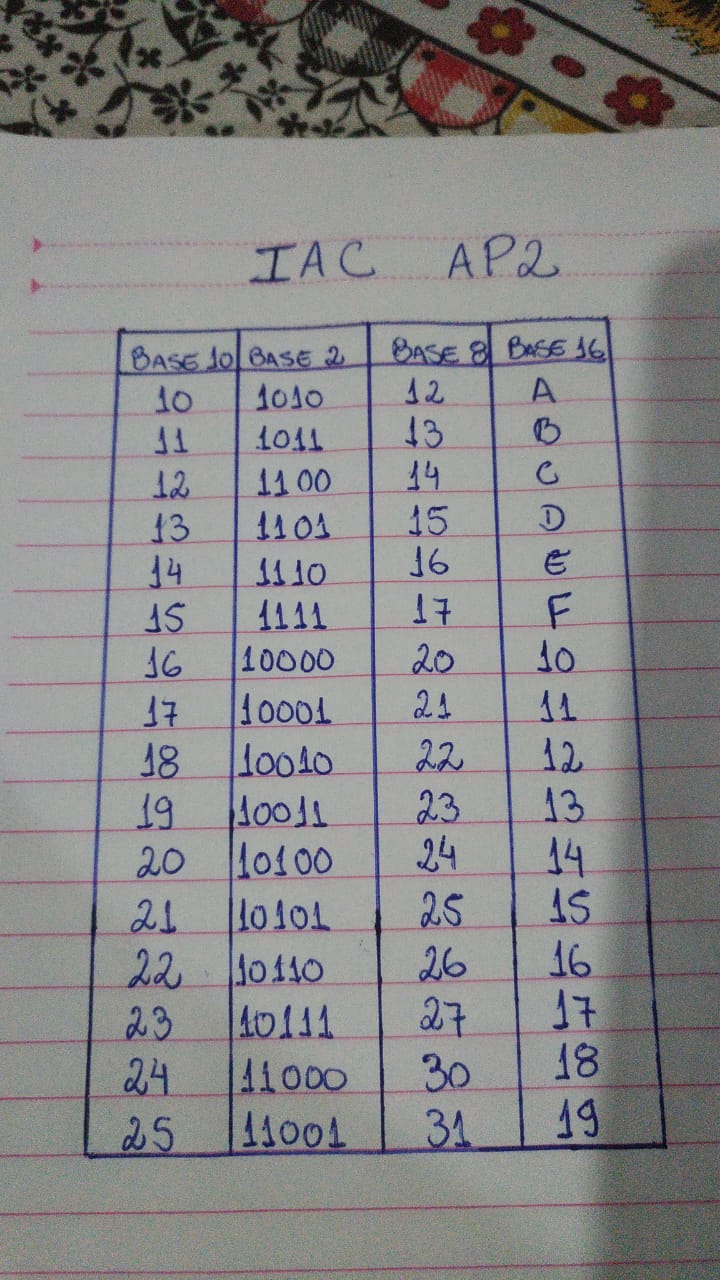 IAC AP2
BASE 10 BASE 2 BASE 8 BASE 16
10 1010 12 A
11 1011 13 B
12 1100 14 C
13 1101 15 D
14 1110 16 E
15 1111 17 F
16 10000 20 10
17 10001 21 11
18 10010 22 12
19 10011 23 13
20 10100 24 14
21 10101 25 15
22 10110 26 16
23 10111 27 17
24 11000 30 18
25 11001 31 19